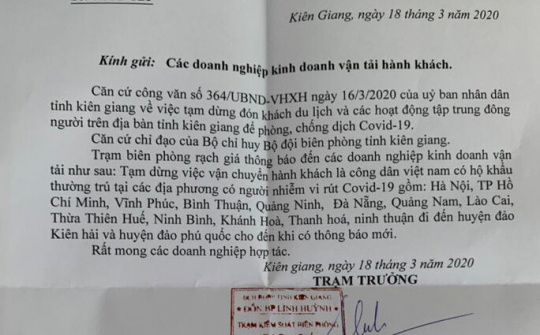 Kiên Giang, ngày 18 tháng 3 năm 2020
Kính gửi: Các doanh nghiệp kinh doanh vận tải hành khách.
Căn cứ công văn số 364/UBND-VHXH ngày 16/3/2020 của uỷ ban nhân dân
tỉnh kiên giang về việc tạm dừng đón khách du lịch và các hoạt động tập trung đông
người trên địa bàn tỉnh kiên giang để phòng, chống dịch Covid-19.
Căn cứ chỉ đạo của Bộ chỉ huy Bộ đội biên phòng tỉnh kiên giang.
Trạm biên phòng rạch giá thông báo đến các doanh nghiệp kinh doanh vận
tải như sau: Tạm dừng việc vận chuyển hành khách là công dân việt nam có hộ khẩu
thường trú tại các địa phương có người nhiễm vi rút Covid-19 gồm: Hà Nội, TP Hồ
Chí Minh, Vĩnh Phúc, Bình Thuận, Quảng Ninh, Đà Nẵng, Quảng Nam, Lào Cai,
Thừa Thiên Huế, Ninh Bình, Khánh Hoà, Thanh hoá, ninh thuận đi đến huyện đảo
Kiên hải và huyện đảo phú quốc cho đến khi có thông báo mới.
Rất mong các doanh nghiệp hợp tác.
Kiên giang, ngày 18 tháng 3 năm 2020
TRẠM TRƯỞNG
TỈNH KIÊN GIANG
ĐỒN BP LÌNH HUỲNH
TRẠM KIỂM SOÁT BIÊN PHÒNG